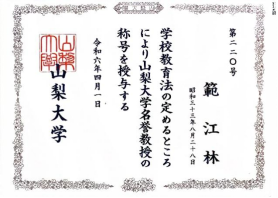 第二二〇号
範江林
昭和三十三年八月二十八日
学校教育法の定めるところ
により山梨大学名誉教授の
称号を授与する
令和六年四月一日
山梨大学